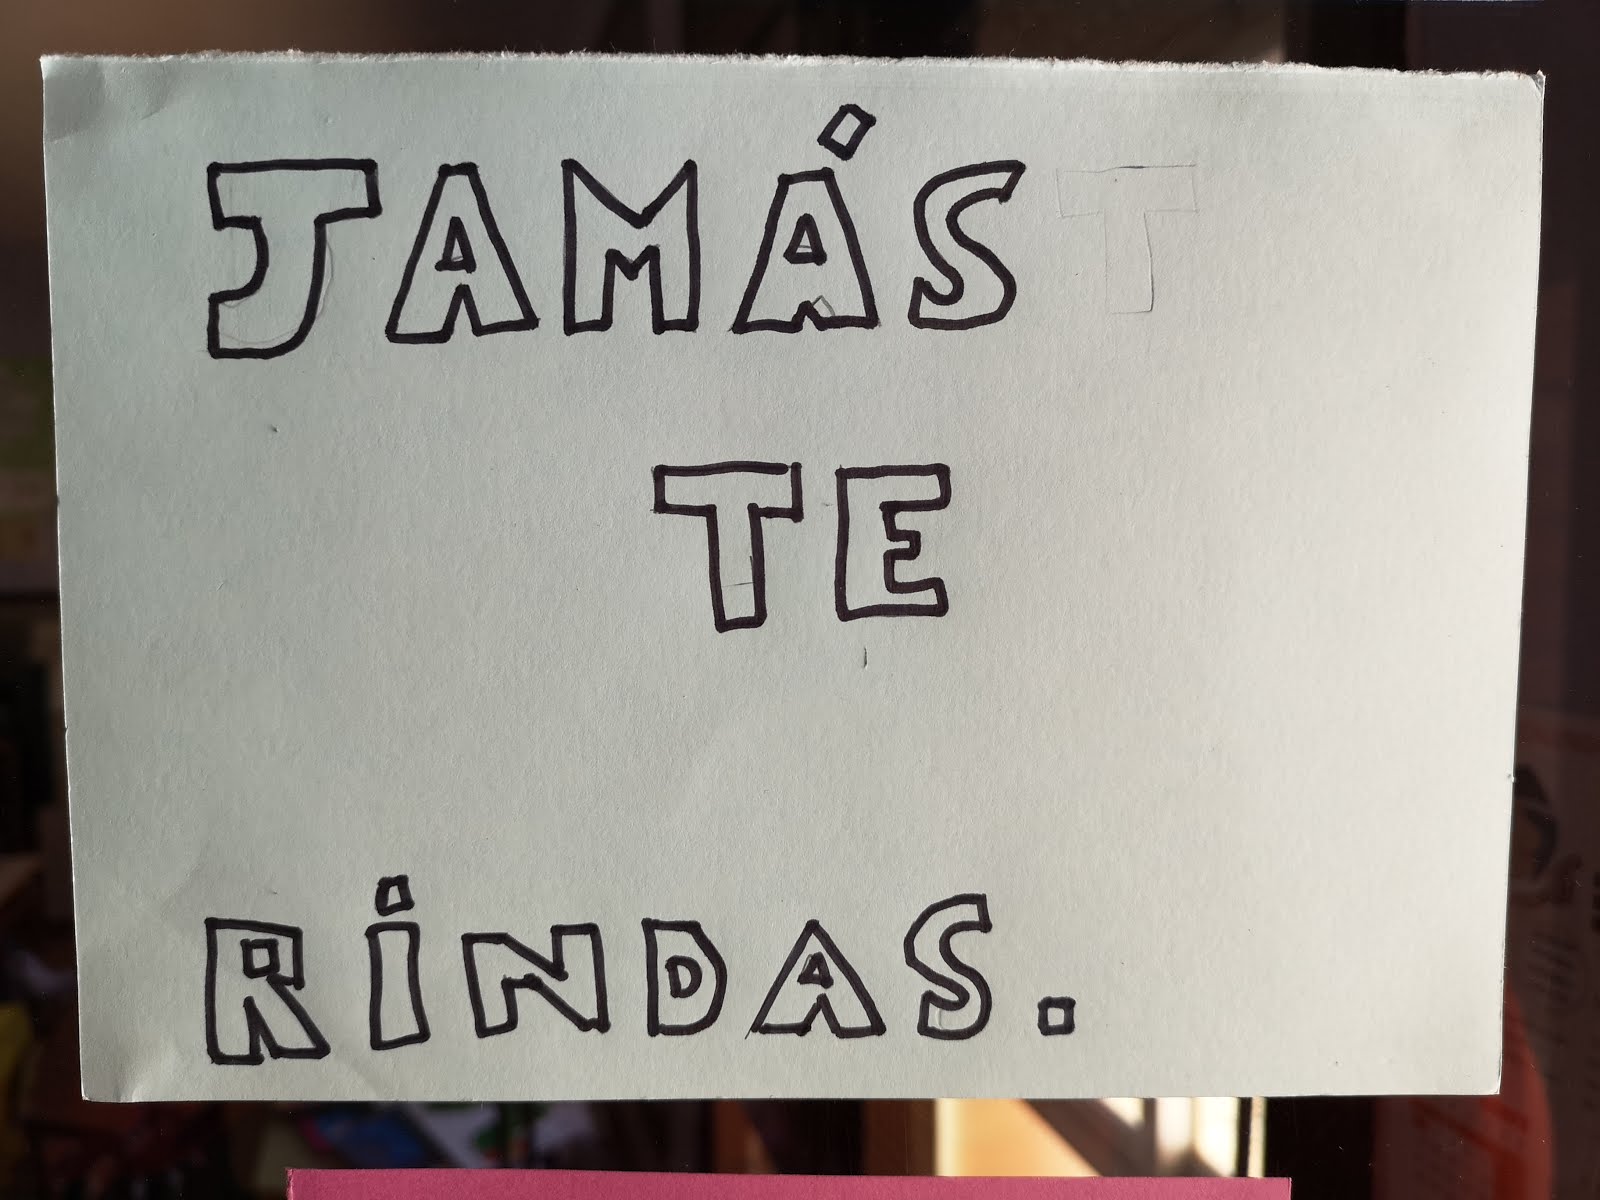 JAMÁS T
TE
RİNDAS.